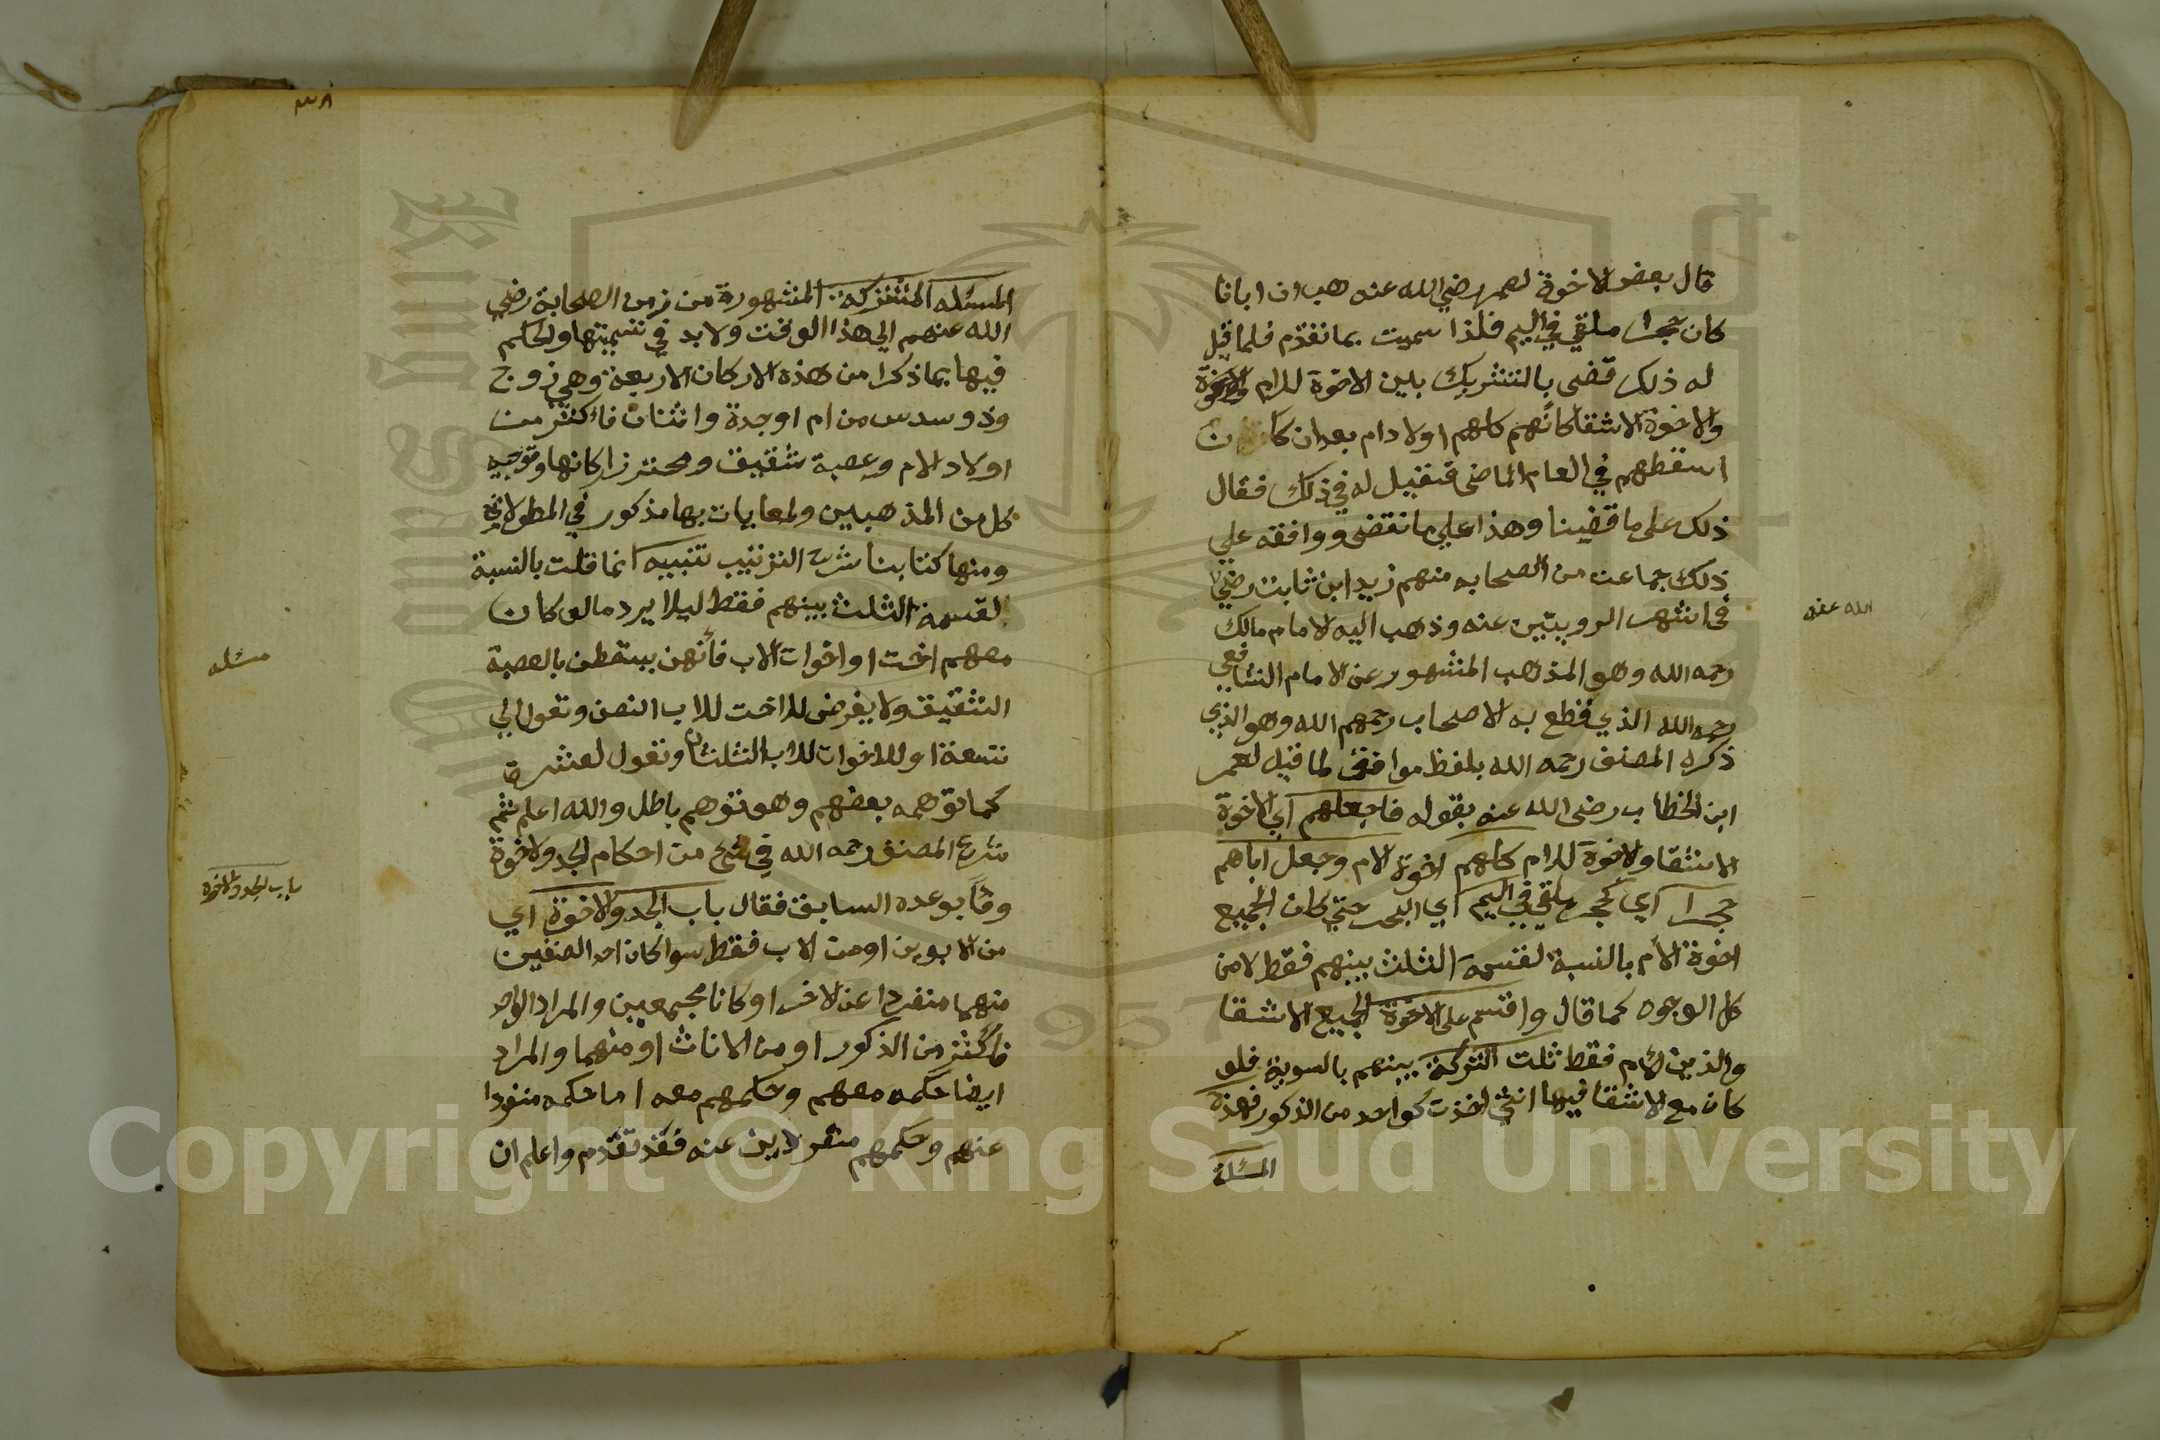 قال بعض الاخوة لعمر رضي الله عنه هب ان ابانا
كان حجرا ملقي في اليم فلذا سميت بما تقدم فلما قيل
له ذلك قضى بالتشريك بين الاخوة للام والاخوة
والاخوة الاشقا كانهم كلهم اولاد ام بعد ان كان
اسقطهم في العام الماضى فقيل له في ذلك فقال
ذلك على ما قضينا وهذا علي ما نقضى ووافقه علي
ذلك جماعت من الصحابه منهم زيد ابن ثابت رضي
الله عنه
في اشهر الرويتين عنه وذهب اليه الامام مالك
رحمه الله وهو المذهب المشهور عن الامام الشافعي
رحمه الله الذي قطع به الاصحاب رحمهم الله وهو الذي
ذكره المصنف رحمه الله بلفظ موافق لما قيل لعمر
ابن الخطاب رضى الله عنه بقوله فاجعلهم اي الاخوة
الاشقا والاخوة للام كلهم اخوة لام وجعل اباهم
حجرا اي كحجر ملقي في اليم اي البحر حتي كان الجميع
اخوة الام بالنسبة لقسمة الثلث بينهم فقط لا من
كل الوجوه كما قال واقسم على الاخوة الجميع الاشقا
والذين لام فقط ثلث التركة بينهم بالسوية فلو
كان مع الاشقا فيها انثي اخذت كواحد من الذكور فهذه
المسئلة
٣٨
المسئله المشتركة المشهورة من زمن الصحابة رضي
الله عنهم الي هذا الوقت ولا بد في تسميتها والحكم
فيها بما ذكرا من هذه الاركان الاربعة وهي زوج
وذو سدس من ام او جدة واثنان فاكثر من
اولاد الام وعصبة شقيق ومحترز اركانها وتوجيه
كل من المذهبين والمعايات بها مذكور في المطولات
ومنها كتابنا شرح الترتيب تنبيه انما قلت بالنسبة
لقسمة الثلث بينهم فقط ليلا يرد ما لو كان
معهم اخت او اخوات لاب فانهن يسقطن بالعصبة
مسئله
الشقيق ولا يفرض للاخت للاب النصف وتعول الي
تسعة او للاخوات للاب الثلثان وتعول لعشرة
كما توهمه بعضهم وهو توهم باطل والله اعلم ثم
شرع المصنف رحمه الله في شيء من احكام الجد والاخوة
باب الجد والاخوة
وفاً بوعده السابق فقال باب الجد والاخوة اي
من الابوين او من الاب فقط سوا كان احد الصنفين
منهما منفردا عن الاخر او كانا مجتمعين والمراد الواحد
فاكثر من الذكور او من الاناث او منهما والمراد
ايضا حكمه معهم وحكمهم معه اما حكمه منفردا
عنهم وحكمهم منفردين عنه فقد تقدم واعلم ان
Copyright © King Saud University
King Saud University
1957